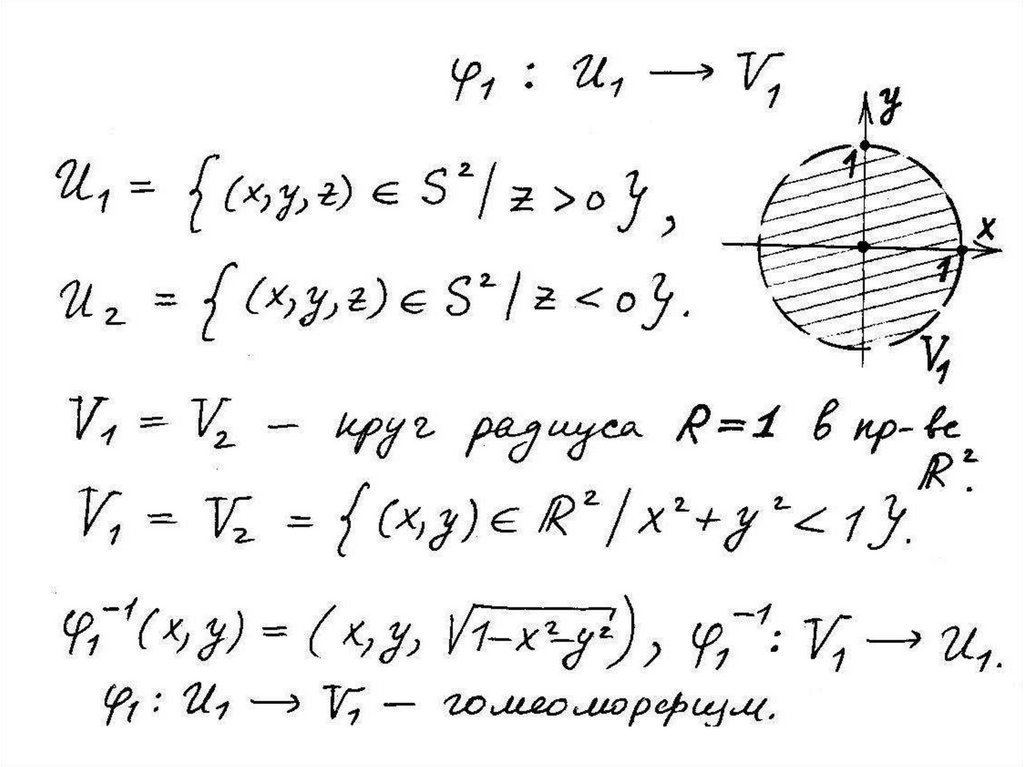 φ₁ : U₁ → V₁
U₁ = {(x,y,z) ∈ S² / z > 0},
U₂ = {(x,y,z) ∈ S² / z < 0}.
y
1
x
1
V₁
V₁ = V₂ – круг радиуса R = 1 в пр-ве
R².
V₁ = V₂ = {(x,y) ∈ R² / x² + y² < 1}.
φ₁⁻¹(x,y) = (x, y, √(1–x²–y²)), φ₁⁻¹ : V₁ → U₁.
φ₁ : U₁ → V₁ – гомеоморфизм.